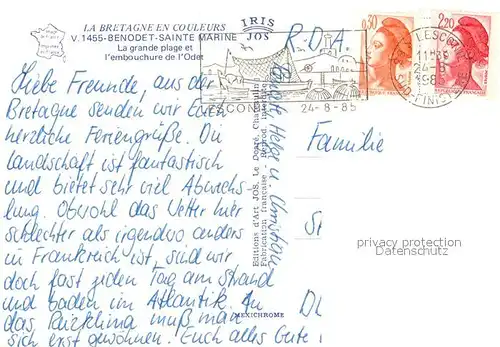 LA BRETAGNE EN COULEURS
V. 1455-BENODET-SAINTE MARINE
La grande plage et
l'embouchure de l'Odet
IRIS
JOS
R.D.A.
0,30
2,20
LESCONIL
24-8-85
11H
24-8
1985
FINIS
Liebe Freunde, aus der
Bretagne senden wir Euch
herzliche Feriengrüße. Die
Landschaft ist fantastisch
und bietet sehr viel Abwechs-
lung. Obwohl das Wetter hier
schlechter als irgendwo anders
in Frankreich ist, sind wir
doch fast jeden Tag am Strand
und baden im Atlantik. An
das Reizklima muß man
sich erst gewöhnen. Euch alles Gute
Helga u. Christian
Editions d'Art JOS, Le Doaré, Chateaulin
Fabrication française Reprod. interdite
MEXICHROME
Familie
privacy protection
Datenschutz